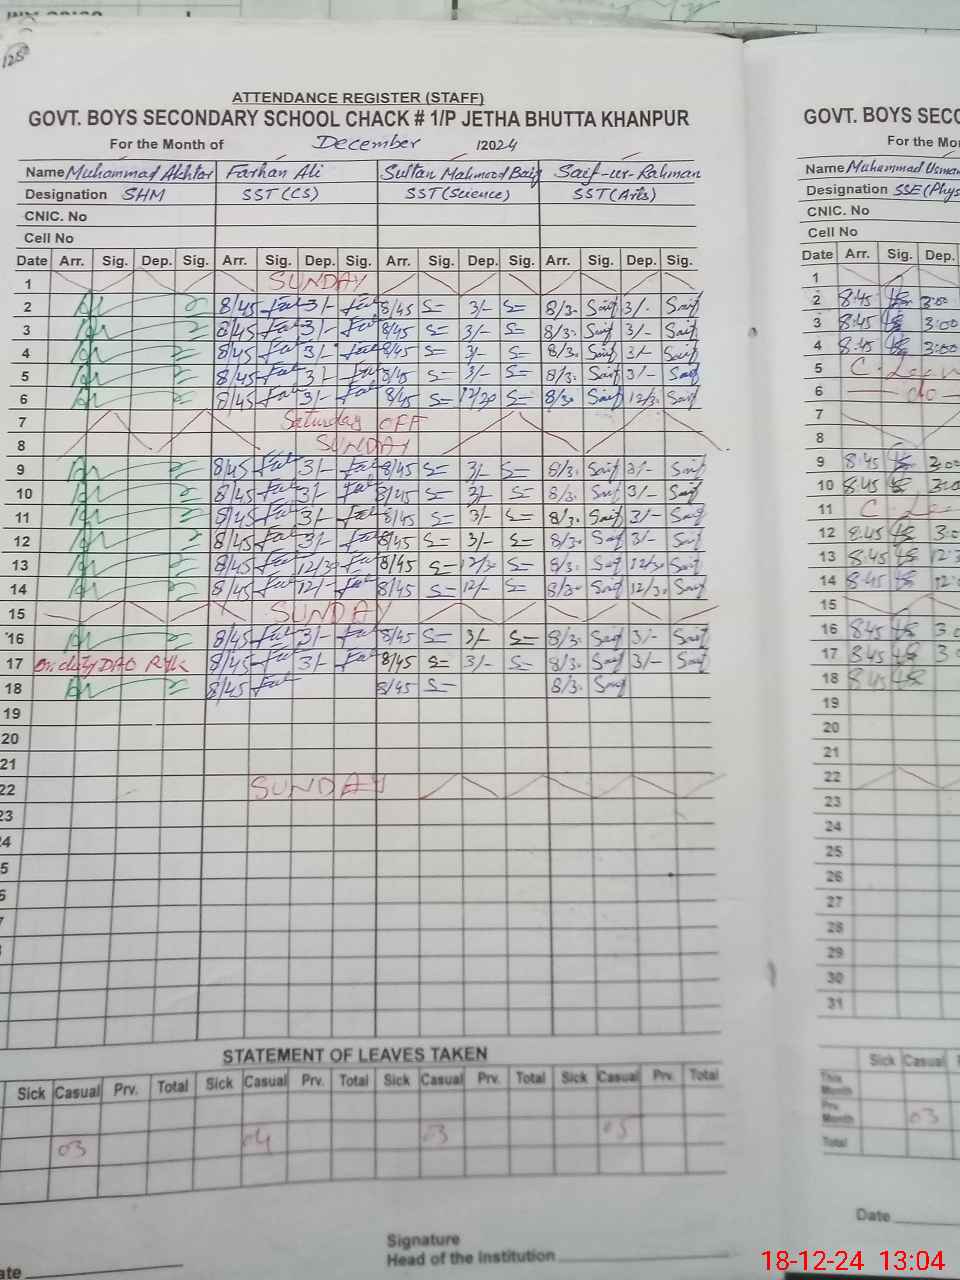 125
ATTENDANCE REGISTER (STAFF)
GOVT. BOYS SECONDARY SCHOOL CHACK # 1/P JETHA BHUTTA KHANPUR
For the Month of December /2024
Name Muhammad Akhtar Farhan Ali Sultan Mahmood Baig Saif-ur-Rahman
Designation SHM SST (CS) SST (Science) SST (Arts)
CNIC. No
Cell No
Date Arr. Sig. Dep. Sig. Arr. Sig. Dep. Sig. Arr. Sig. Dep. Sig. Arr. Sig. Dep. Sig.
1 SUNDAY
2 8/45 3/- 8/45 S= 3/- S= 8/3. Saif 3/- Saif
3 8/45 3/- 8/45 S= 3/- S= 8/3. Saif 3/- Saif
4 8/45 3/- 8/45 S= 3/- S= 8/3. Saif 3/- Saif
5 8/45 3/- 8/45 S= 3/- S= 8/3. Saif 3/- Saif
6 8/45 3/- 8/45 S= 12/30 S= 8/30 Saif 12/3. Saif
7 Saturday OFF
8 SUNDAY
9 8/45 3/- 8/45 S= 3/- S= 8/3. Saif 3/- Saif
10 8/45 3/- 8/45 S= 3/- S= 8/3. Saif 3/- Saif
11 8/45 3/- 8/45 S= 3/- S= 8/3. Saif 3/- Saif
12 8/45 3/- 8/45 S= 3/- S= 8/3. Saif 3/- Saif
13 8/45 12/30 8/45 S= 12/30 S= 8/3. Saif 12/30 Saif
14 8/45 12/- 8/45 S= 12/- S= 8/30 Saif 12/3. Saif
15 SUNDAY
16 8/45 3/- 8/45 S= 3/- S= 8/3. Saif 3/- Saif
17 On duty DAO RYK 8/45 3/- 8/45 S= 3/- S= 8/3. Saif 3/- Saif
18 8/45 8/45 S= 8/3. Saif
19
20
21
22 SUNDAY
23
STATEMENT OF LEAVES TAKEN
Sick Casual Prv. Total Sick Casual Prv. Total Sick Casual Prv. Total Sick Casual Prv. Total
03 04 03 05
Signature
Head of the Institution
GOVT. BOYS SECO
For the Mon
Name Muhammad Usman
Designation SSE (Phys
CNIC. No
Cell No
Date Arr. Sig. Dep.
1
2 8:45 3:00
3 8:45 3:00
4 8:45 3:00
5 C.
6 do
7
8
9 8:45 3:00
10 8:45 3:00
11 C.
12 8:45 3:0
13 8:45 12:3
14 8:45 12:
15
16 8:45 3:0
17 8:45 3:0
18 8:45
19
20
21
22
23
24
25
26
27
28
29
30
31
Sick Casual
This Month
Prv. Month 03
Total
Date
18-12-24 13:04